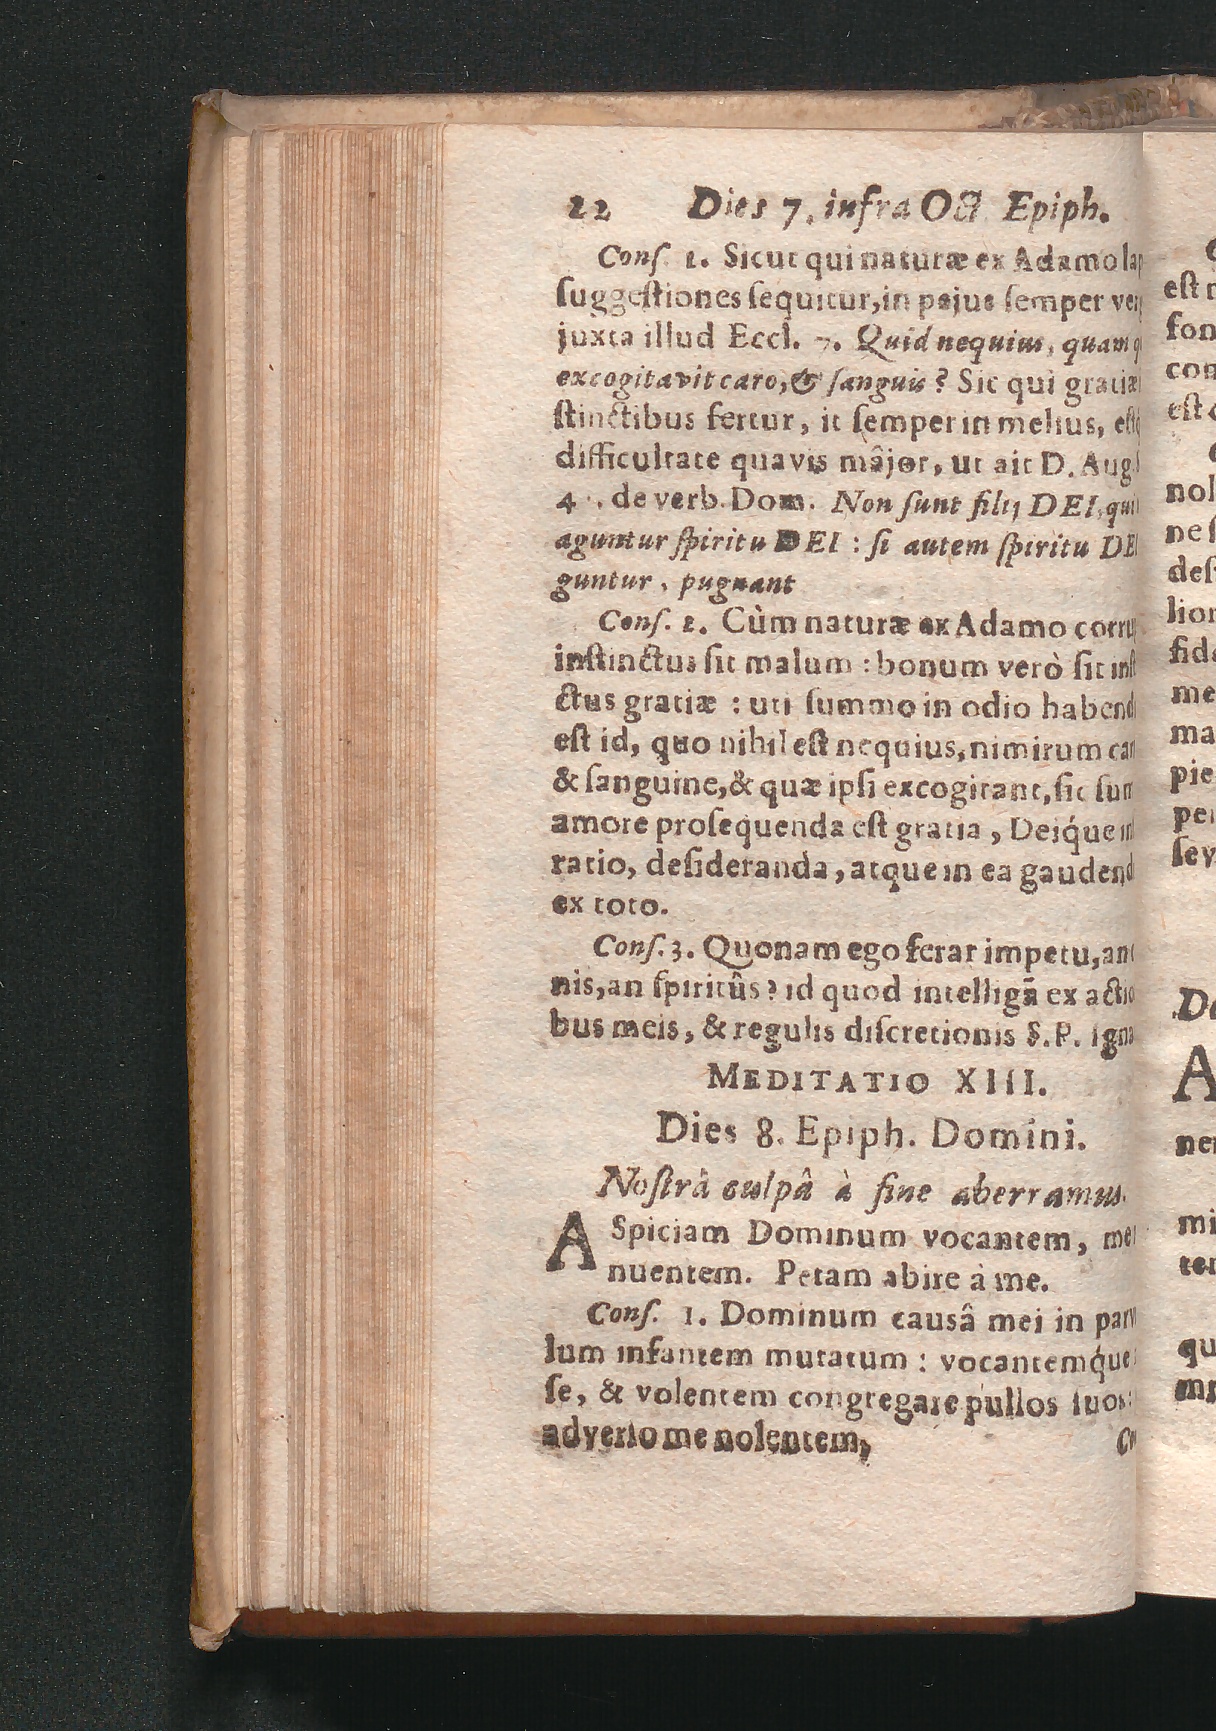 22 Dies 7. infra Oct Epiph.
Conſ. 1. Sicut qui naturæ ex Adamo lap
ſuggeſtiones ſequitur, in pejus ſemper ver
juxta illud Eccl. 7. Quid nequius, quam q
excogitavit caro, & ſanguis? Sic qui gratiæ
ſtinctibus fertur, it ſemper in melius, eſt
difficultate quavis mâjor, ut ait D. Aug.
4 . de verb. Dom. Non ſunt filij DEI, qui
aguntur ſpiritu DEI : ſi autem ſpiritu DEI
guntur, pugnant
Conſ. 2. Cùm naturæ ex Adamo corru
inſtinctus ſit malum : bonum verò ſit inſt
ctus gratiæ : uti ſummo in odio habend
eſt id, quo nihil eſt nequius, nimirum car
& ſanguine, & quæ ipſi excogitant, ſic ſum
amore proſequenda eſt gratia, Deiq́ue in
ratio, deſideranda, atque in ea gaudend
ex toto.
Conſ. 3. Quonam ego ferar impetu, an c
nis, an ſpiritûs? id quod intelligā ex actio
bus meis, & regulis diſcretionis S. P. Igna
MEDITATIO XIII.
Dies 8. Epiph. Domini.
Noſtrâ culpâ à fine aberramus.
ASpiciam Dominum vocantem, me
nuentem. Petam abire à me.
Conſ. 1. Dominum causâ mei in parv
lum infantem mutatum : vocantemq́ue
ſe, & volentem congregare pullos ſuos:
adverſo me nolentem,
Co
eſt
fon
con
eſt
nol
ne ſ
deſ
lior
fid
me
ma
pie
per
ſev
De
A
ner
mi
ter
qu